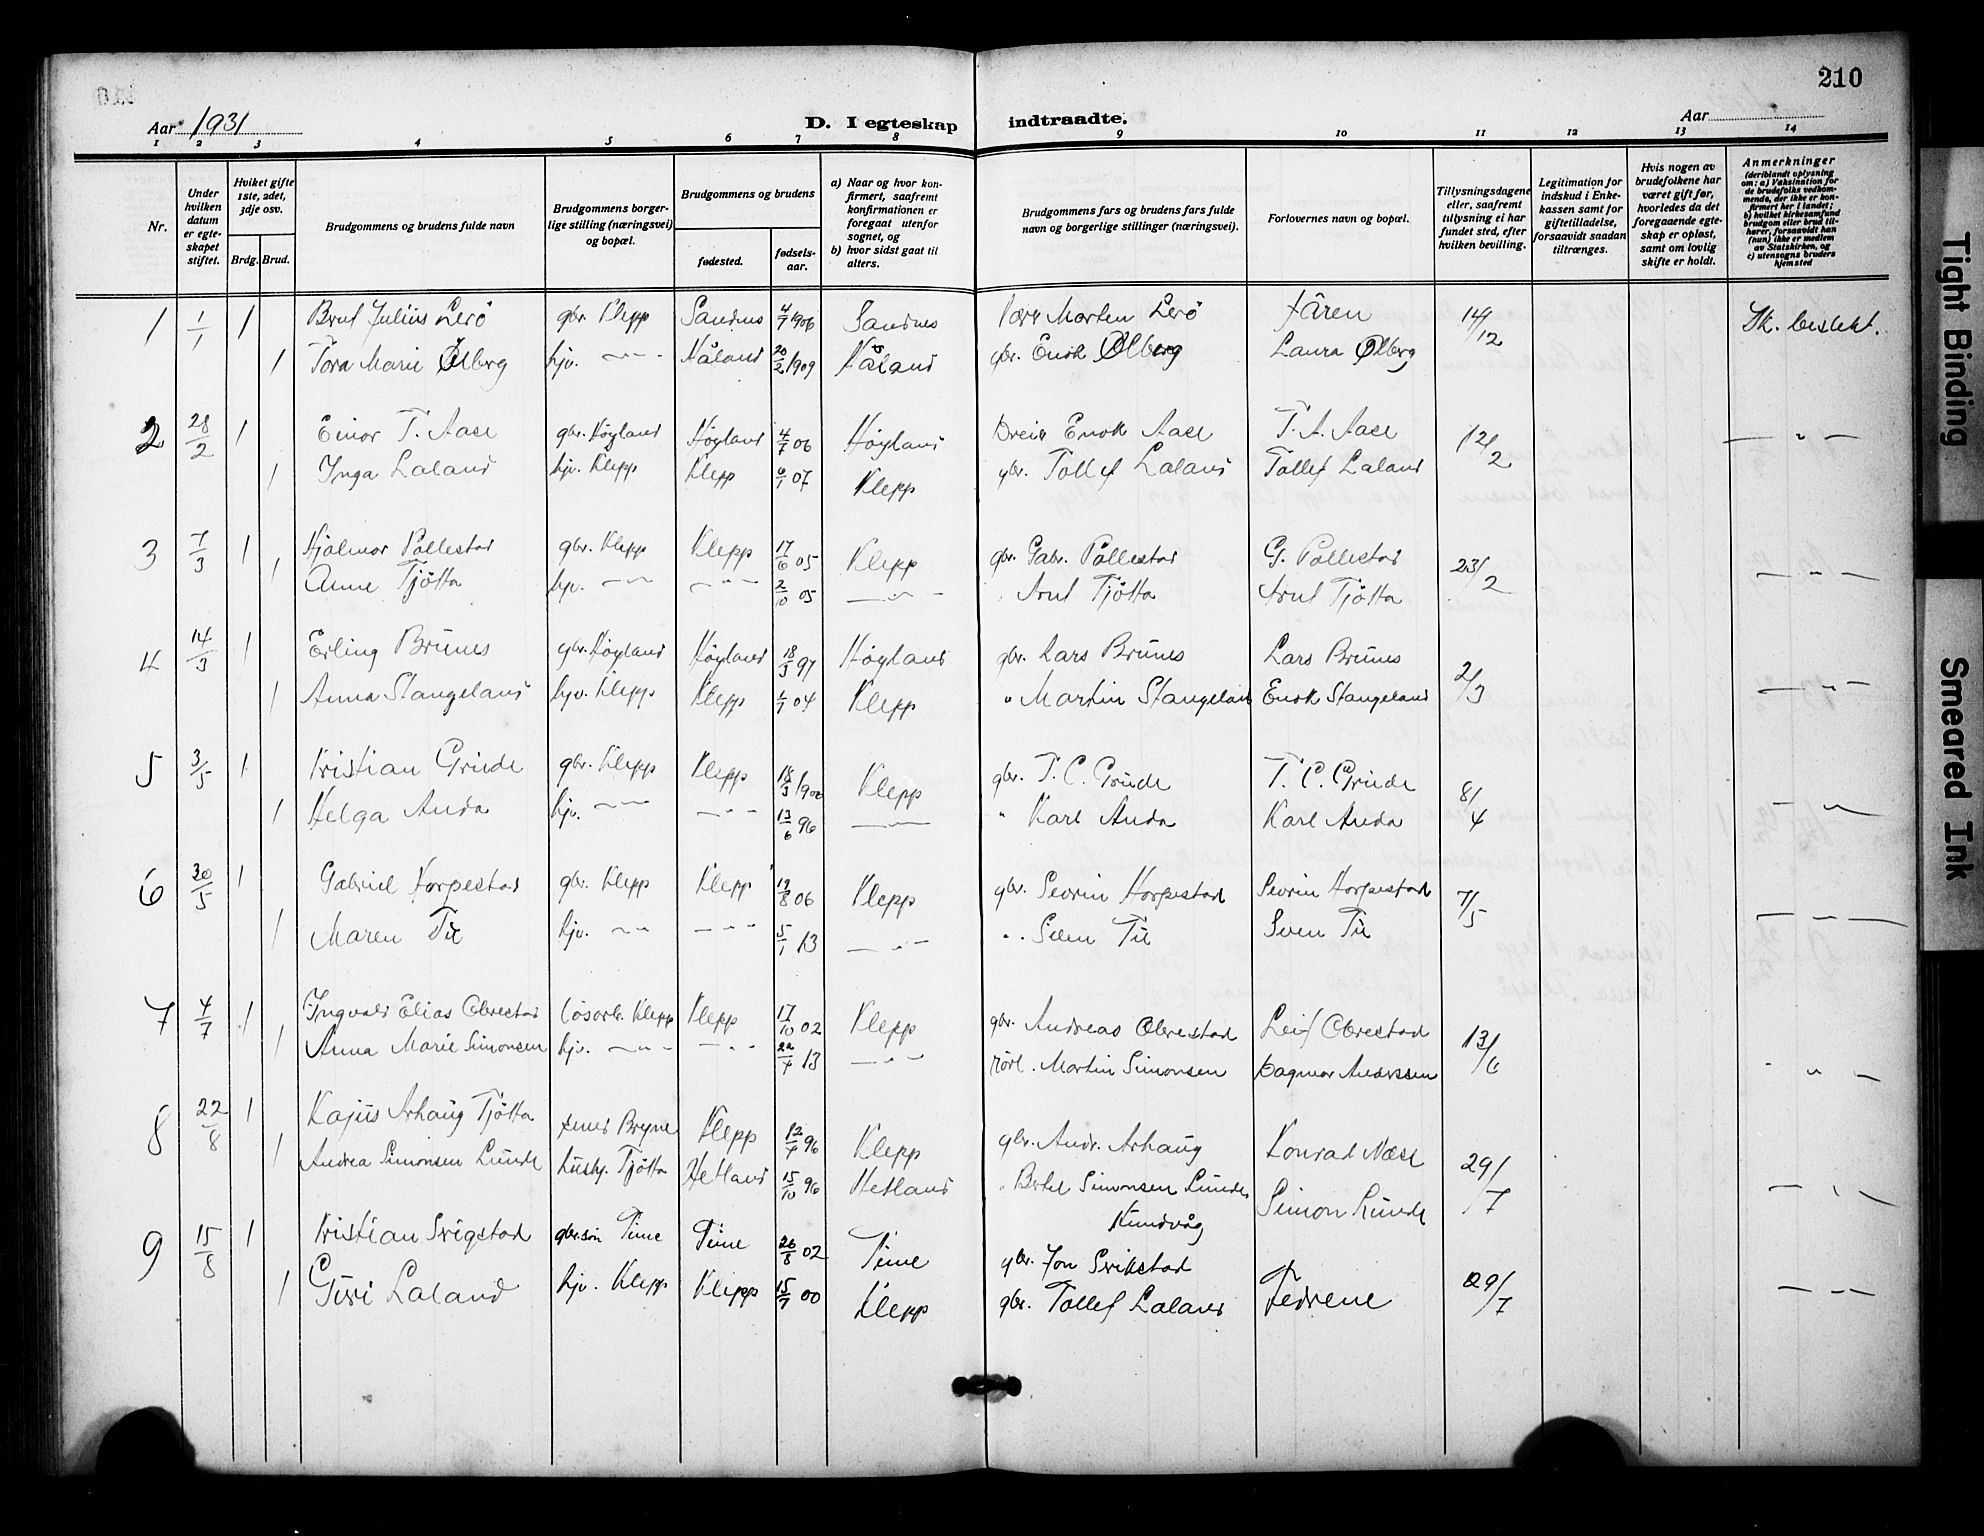 210
Aar 1931
D. I egteskap indtraadte.
Aar
1 2 3 4 5 6 7 8 9 10 11 12 13 14
Nr.
Under hvilken datum er egteskapet stiftet.
Hviket gifte 1ste, 2det, 3dje osv.
Brdg. Brud.
Brudgommens og brudens fulde navn
Brudgommens borgerlige stilling (næringsvei) og bopæl.
Brudgommens og brudens
fødested.
fødselsaar.
a) Naar og hvor konfirmert, saafremt konfirmationen er foregaat utenfor sognet, og
b) hvor sidst gaat til alters.
Brudgommens fars og brudens fars fulde navn og borgerlige stillinger (næringsvei).
Forlovernes navn og bopæl.
Tillysningsdagene eller, saafremt tillysning ei har fundet sted, efter hvilken bevilling.
Legitimation for indskud i Enkekassen samt for giftetilladelse, forsaavidt saadan tiltrænges.
Hvis nogen av brudefolkene har været gift før, hvorledes da det foregaaende egteskap er opløst, samt om lovlig skifte er holdt.
Anmerkninger (deriblandt oplysning om: a) Vaksination for de brudefolks vedkommende, der ikke er konfirmert her i landet; b) hvilket kirkesamfund brudgom eller brud tilhører, forsaavidt han (hun) ikke er medlem av Statskirken, og c) utensogns bruders hjemsted
1 1/1 1 Julius Lerö gbr. Klepp Sandnes 4/7 1906 Sandnes Morten Lerö 14/12
1 Tora Marie Ølberg hjv. — " — Håland 20/2 1909 Håland gbr. Enok Ølberg Laura Ølberg
2 28/2 1 Einar T. Aase gbr. Høyland Høyland 4/7 06 Høyland Enok Aase T. A. Aase 12/2 — " —
1 Inga Laland hjv. Klepp Klepp 6/1 07 Klepp gbr. Tollef Laland Tollef Laland
3 7/3 1 Hjalmar Pollestad gbr. Klepp Klepp 17/6 05 Klepp gbr. Gabr. Pollestad G. Pollestad 23/2 — " —
1 Anne Tjötta hjv. — " — — " — 2/10 05 — " — Arnt Tjötta Arnt Tjötta
4 14/3 1 Erling Brunes gbr. Høyland Høyland 18/3 97 Høyland gbr. Lars Brunes Lars Brunes 2/3 — " —
1 Anna Stangeland hjv. Klepp Klepp 1/7 04 Klepp " Martin Stangeland Enok Stangeland
5 3/5 1 Kristian Grude gbr. Klepp Klepp 18/3 1900 Klepp gbr. T. C. Grude T. C. Grude 8/4 — " —
1 Helga Anda hjv. — " — — " — 13/6 96 — " — " Karl Anda Karl Anda
6 30/5 1 Gabriel Horpestad gbr. Klepp Klepp 19/8 06 Klepp gbr. Sevrin Horpestad Sevrin Horpestad 7/5 — " —
1 Maren Tu hjv. — " — — " — 5/1 13 — " — " Sven Tu Sven Tu
7 4/7 1 Ingvald Elias Obrestad Klepp Klepp 17/10 02 Klepp gbr. Andreas Obrestad Leif Obrestad 13/6 — " —
1 Anna Marie Simonsen hjv. — " — — " — 22/4 13 — " — Martin Simonsen Dagmar Anderssen
8 22/8 1 Kajus Arhaug Tjötta Bryne Klepp 12/4 96 Klepp gbr. Andr. Arhaug Konrad Næse 29/7 — " —
1 Andrea Simonsen Lunde Tjötta Hetland 15/10 96 Hetland Simonsen Lunde Simon Lunde
9 15/8 1 Kristian Svigstad gbr.sön Time Time 26/8 02 Time gbr. Jon Svikstad 29/7 — " —
1 Guri Laland hjv. Klepp Klepp 15/7 00 Klepp gbr. Tollef Laland Fedrene
Tight Binding
Smeared Ink